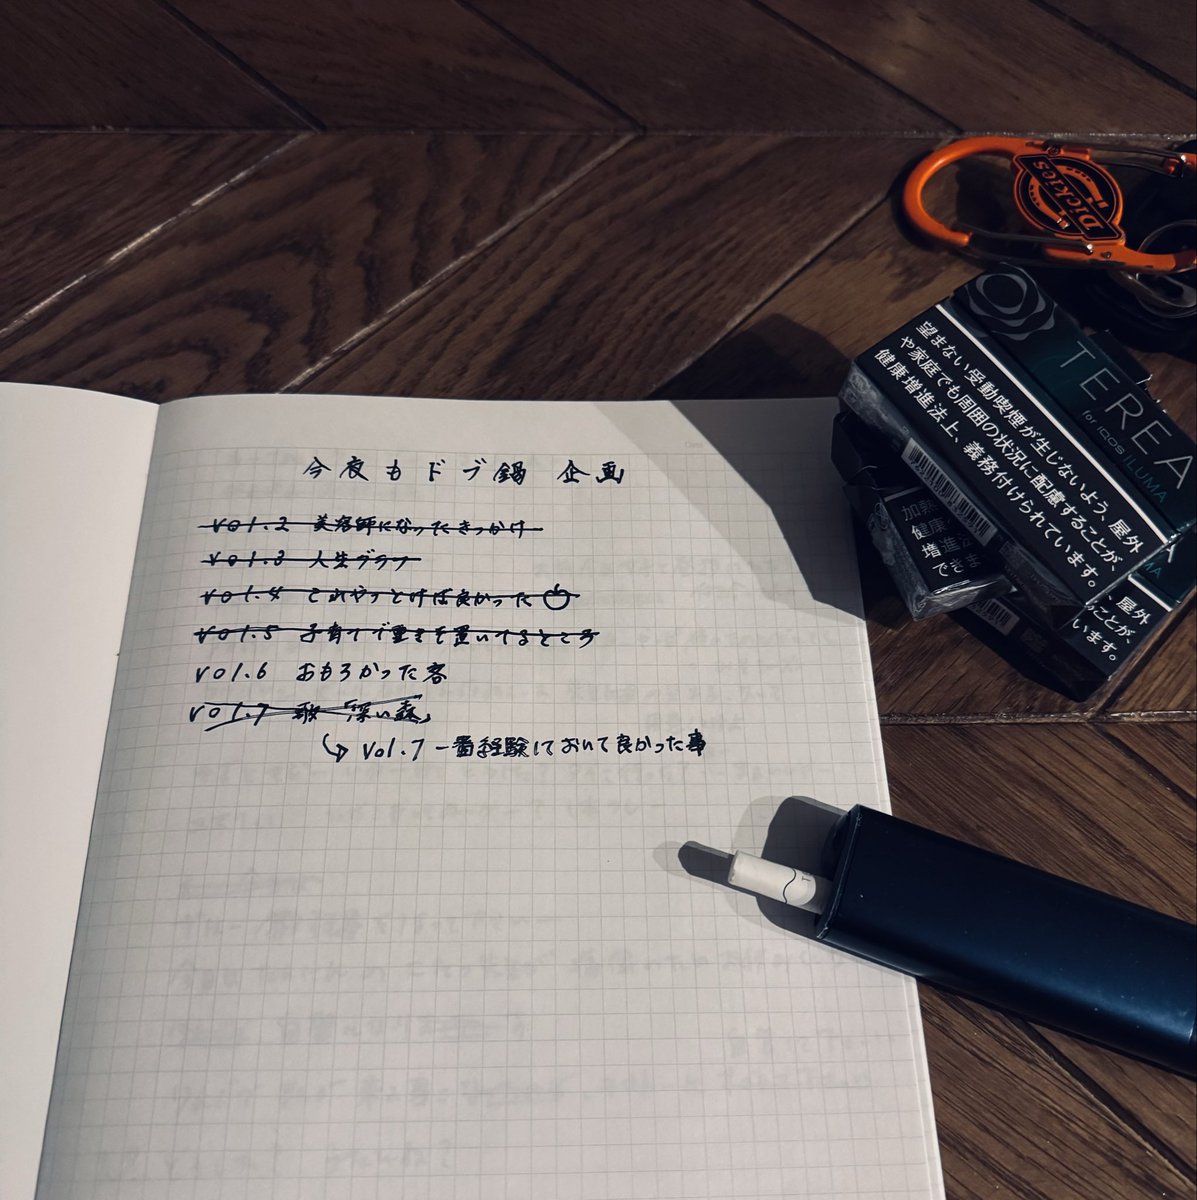 今夜もドブ鍋 企画
vol.2 美容師になったきっかけ
vol.3 人生グラフ
vol.4 これやっとけば良かった
vol.5 子育てで重きを置いてるところ
vol.6 おもろかった客
vol.7 歌「深い森」
vol.7 一番経験しておいて良かった事
Dickies
TEREA
for IQOS ILUMA
望まない受動喫煙が生じないよう、屋外
や家庭でも周囲の状況に配慮することが、
健康増進法上、義務付けられています。
加熱
健康
増進
で
、屋外
ことが、
います。